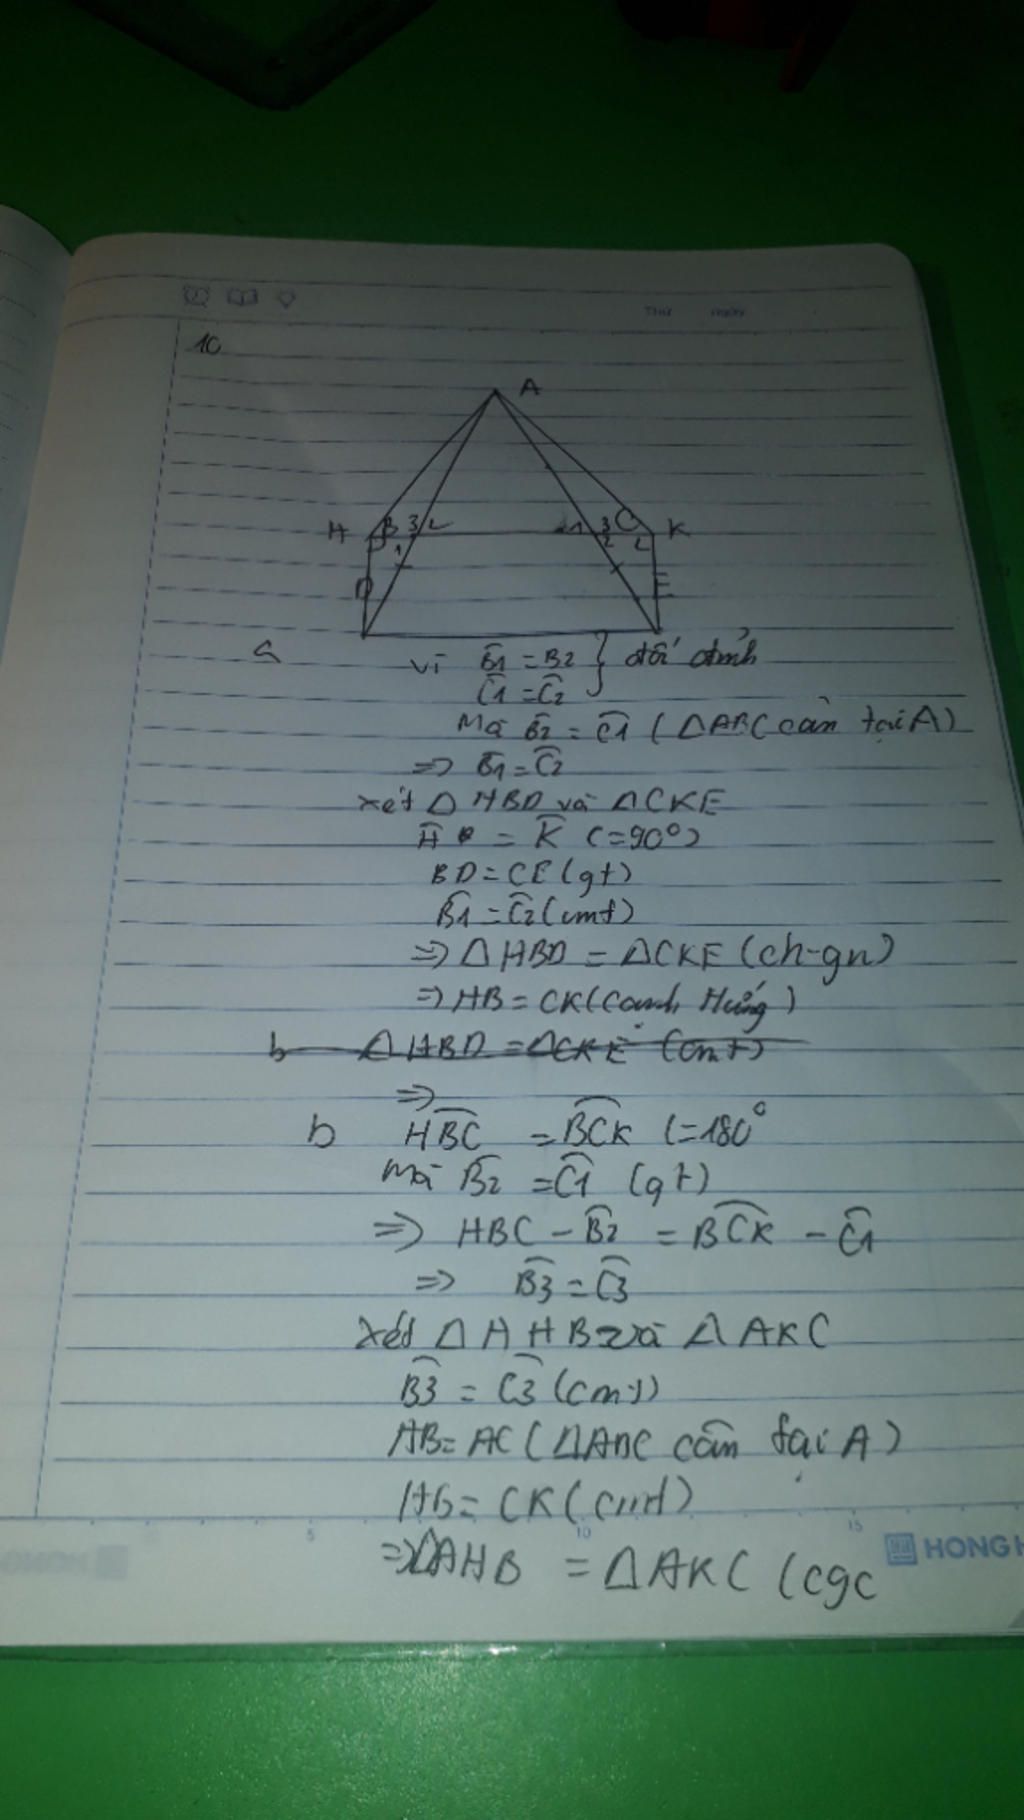 THỨ NGÀY
10
A
H B 3 2 1 3 C K
1 2 2
D E
a vì B̂1 = B2 } đối đỉnh
Ĉ1 = Ĉ2
Mà B̂2 = Ĉ1 ( ΔABC cân tại A)
=> B̂1 = Ĉ2
xét Δ HBD và ΔCKE
Ĥ = K̂ (=90°)
BD = CE (gt)
B̂1 = Ĉ2 (cmt)
=> Δ HBD = ΔCKE (ch-gn)
=> HB = CK (cạnh tướng )
b Δ HBD = ΔCKE (cmt)
=>
b HBC = BCK (=180°
Mà B̂2 = Ĉ1 (gt)
=> HBC - B̂2 = BCK - Ĉ1
=> B̂3 = Ĉ3
xét Δ AHB và Δ AKC
B̂3 = Ĉ3 (cmt)
AB = AC ( ΔABC cân tại A )
HB = CK ( cmt )
=> ΔAHB = Δ AKC (cgc
5 10 15
HONG H